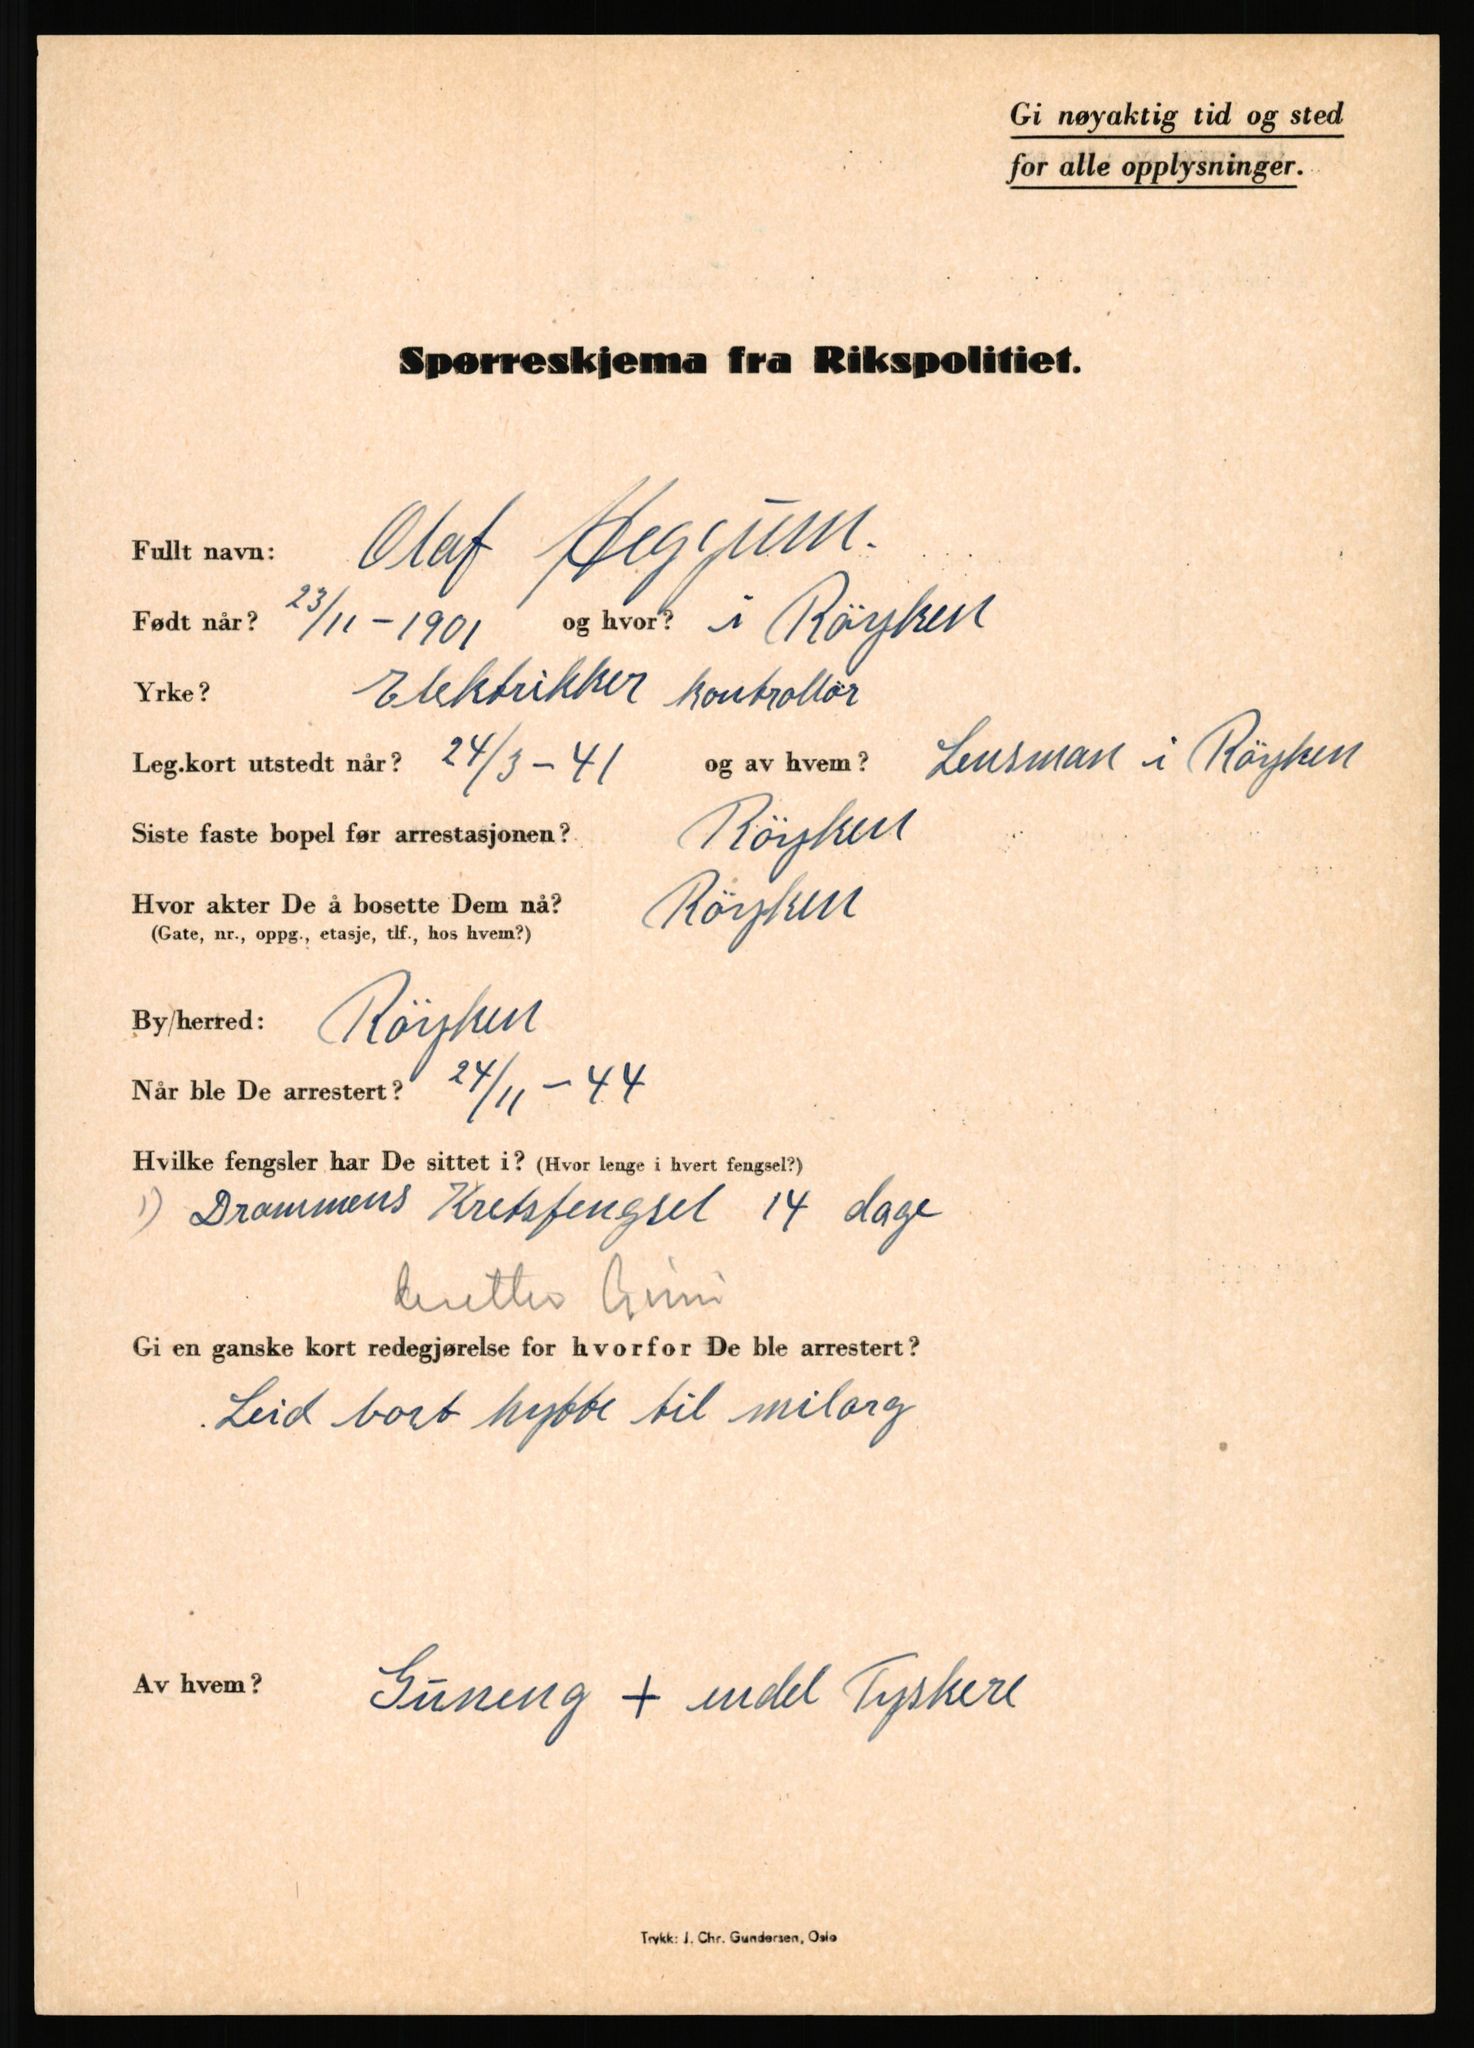 Gi nøyaktig tid og sted
for alle opplysninger.
Spørreskjema fra Rikspolitiet.
Fullt navn: Olaf Heggum.
Født når? 23/11 - 1901 og hvor? i Röyken
Yrke? Elektrikker kontrollør
Leg.kort utstedt når? 24/3 - 41 og av hvem? Lensman i Röyken
Siste faste bopel før arrestasjonen? Röyken
Hvor akter De å bosette Dem nå? Röyken
(Gate, nr., oppg., etasje, tlf., hos hvem?)
By/herred: Röyken
Når ble De arrestert? 24/11 - 44
Hvilke fengsler har De sittet i? (Hvor lenge i hvert fengsel?)
1) Drammens Kretsfengsel 14 dage
Grini
Gi en ganske kort redegjørelse for hvorfor De ble arrestert?
Leid bort hytte til milorg
Av hvem? Guneng + endel Tyskere
Trykk: J. Chr. Gundersen, Oslo